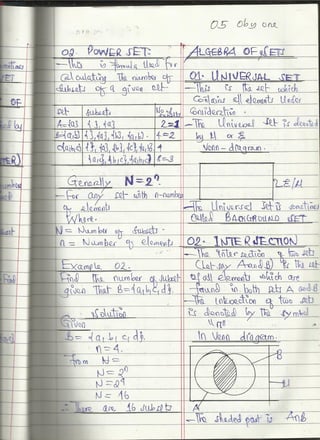 05 Oby one
02. POWER SET:
— This is formula Used for
Calculating The number of
subsets of a given set
Set subsets No of subsets
A={a} { }, {a} 2=1
B={a,b} { }, {a}, {b}, {a,b}. 4=2
{a,b}, {a,c}, {b,c}, {a,b,c} 8=3
Generally N=2ⁿ.
— For any set with n-number
of elements
Where.
N = Number of subsets.
n = Number of elements
Example 02.
Find the number of subset
given that B={a,b,c,d}.
solution
Given
B= {a, b, c, d}.
n=4.
from N=
N=2ⁿ
N=2⁴
N= 16
∴ There are 16 subsets
ALGEBRA OF SETS
01. UNIVERSAL SET
— This is the set which
Contains all elements Under
Consideration.
— The Universal set is denoted
by M or ξ
Venn-diagram.
ξ/M
— The Universal Set is sometimes
Called BACKGROUND SET.
02. INTERSECTION
— The Intersection of two sets
(Let say A and B) is the set
of all elements which are
found in both sets A and B
— The Intersection of two sets
is denoted by the symbol
"∩"
In Venn diagram.
B
M
A
— The shaded part is A∩B